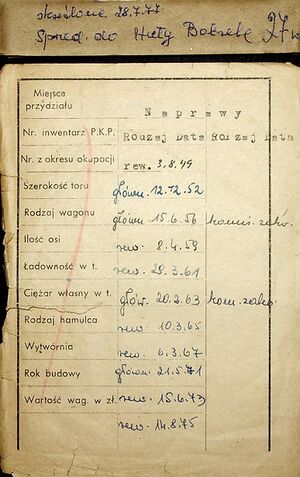 skreślone 28.7.77
Sprzed. do Huty Bobrek
Miejsce
przydziału
Naprawy
Nr. inwentarz P.K.P.
Rodzaj Data Rodzaj Data
Nr. z okresu okupacji
rew. 3.8.49
Szerokość toru
główn. 12.12.52
Rodzaj wagonu
główn. 15.6.56
Ilość osi
rew. 8.4.59
Ładowność w t.
rew. 28.3.61
Ciężar własny w t.
głów. 20.2.63
Rodzaj hamulca
rew. 10.3.65
Wytwórnia
rew. 6.3.67
Rok budowy
główn. 21.5.71
Wartość wag. w zł.
rew. 15.6.73
rew. 14.8.75